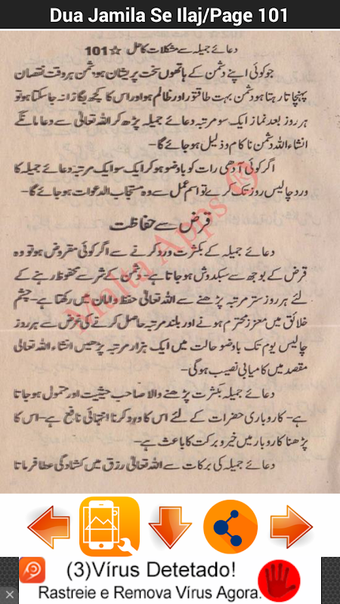 Dua Jamila Se Ilaj/Page 101
دعائے جمیلہ سے مشکلات کا حل ☆ 101
جو کوئی اپنے دشمن کے ہاتھوں سخت پریشان ہو دشمن ہر وقت نقصان
پہنچاتا رہتا ہو دشمن بہت طاقتور اور ظالم ہو اور اس کا کچھ بگاڑا نہ جا سکتا ہو تو
ہر روز بعد نماز ایک سو مرتبہ دعائے جمیلہ پڑھ کر اللہ تعالیٰ سے دعا مانگے
انشاء اللہ دشمن ناکام و ذلیل ہو جائے گا۔
اگر کوئی آدھی رات کو باوضو ہو کر ایک سو ایک مرتبہ دعائے جمیلہ کا
ورد چالیس روز تک کرے تو اس عمل سے وہ مستجاب الدعوات ہو جائے گا۔
قرض سے حفاظت
دعائے جمیلہ کے بکثرت ورد کرنے سے اگر کوئی مقروض ہو تو وہ
قرض کے بوجھ سے سبکدوش ہو جاتا ہے۔ دشمن کے شر سے محفوظ رہنے کے
لئے ہر روز ستر مرتبہ پڑھنے سے اللہ تعالیٰ حفظ و امان میں رکھتا ہے۔ چشم
خلائق میں معزز محترم ہونے اور بلند مرتبہ حاصل کرنے کی غرض سے ہر روز
چالیس یوم تک باوضو حالت میں ایک ہزار مرتبہ پڑھیں انشاء اللہ تعالیٰ
مقصد میں کامیابی نصیب ہوگی۔
دعائے جمیلہ بکثرت پڑھنے والا صاحب حیثیت اور متمول ہو جاتا
ہے۔ کاروباری حضرات کے لئے اس کا ورد کرنا انتہائی نافع ہے۔ اس کا
پڑھنا کاروبار میں خیر و برکت کا باعث ہے۔
دعائے جمیلہ کی برکات سے اللہ تعالیٰ رزق میں کشادگی عطا فرماتا
(3)Vírus Detetado!
Rastreie e Remova Vírus Agora.